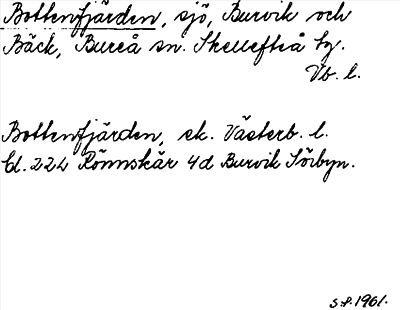 Bottenfjärden, sjö, Burvik och
Bäck, Bureå sn. Skellefteå tg.
Vb. l.
Bottenfjärden, ek. Västerb. l.
bl. 22L Rönnskär 4d Burvik Sörbyn.
S.P. 1961.